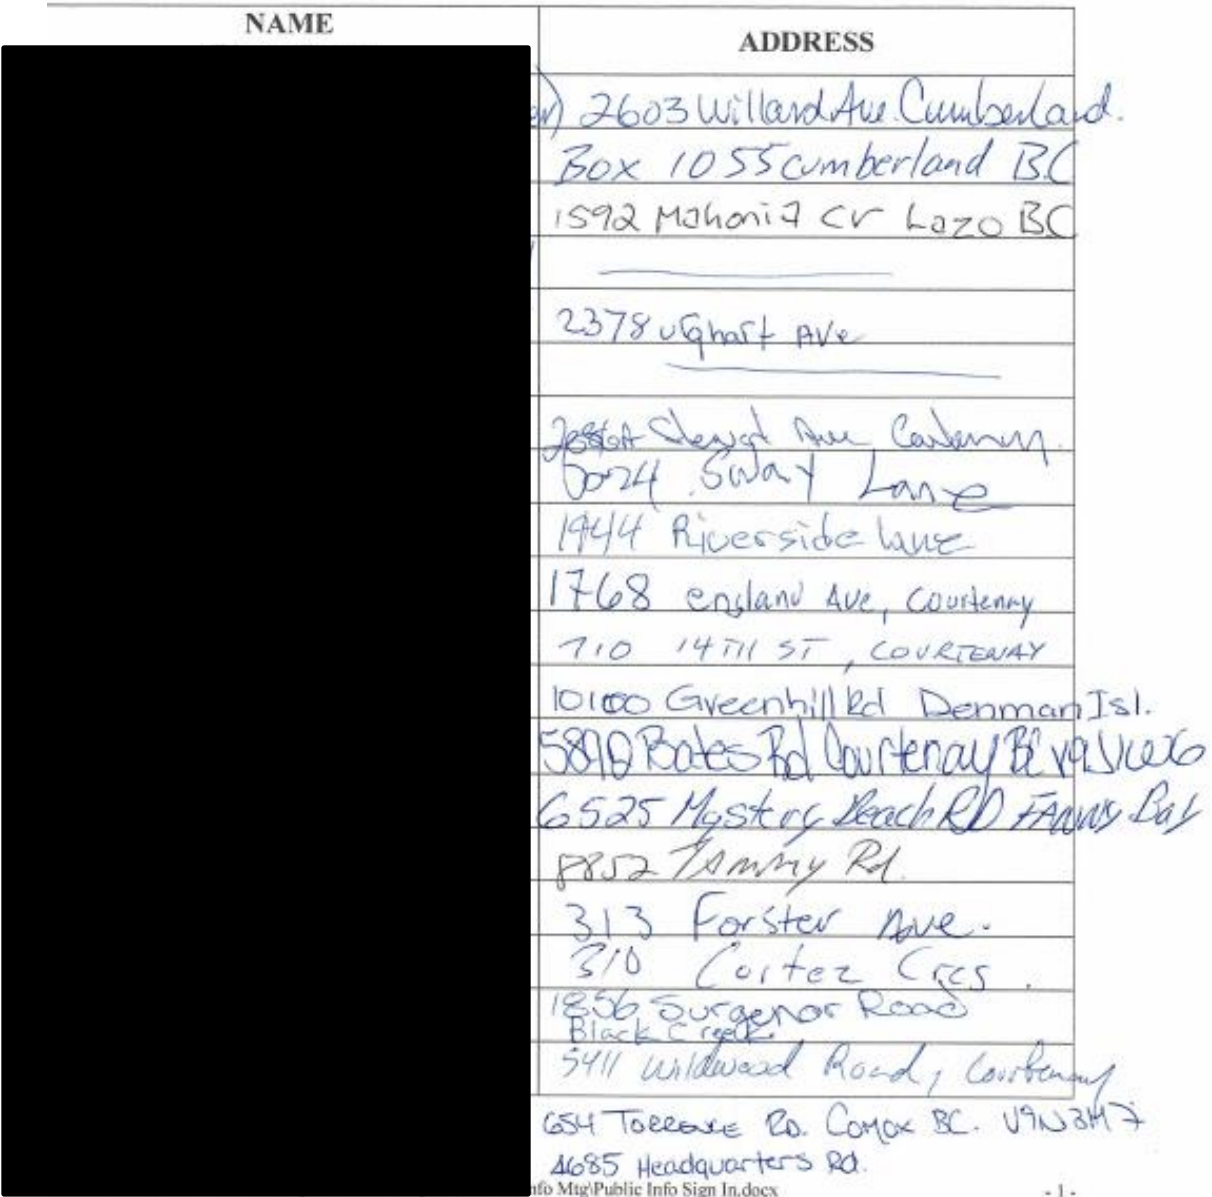 NAME
ADDRESS
2603 Willard Ave. Cumberland.
Box 1055 Cumberland BC
1592 Mahonia Cr Lazo BC
2378 Urquhart Ave
Ave
Sway Lane
1944 Riverside Lane
1768 England Ave, Courtenay
710 14TH ST, COURTENAY
Greenhill Rd Denman Isl.
Bates Rd Courtenay BC
6525 Mystery Beach RD FANNY Bay
8852 Tammy Rd.
313 Forster Ave.
310 Cortez Cres.
1856 Surgenor Road
Black Creek
5411 Wildwood Road, Courtenay
654 TORRENCE RD. COMOX BC. V9N 3M7
4685 Headquarters Rd.
nfo Mtg\Public Info Sign In.docx
- 1 -